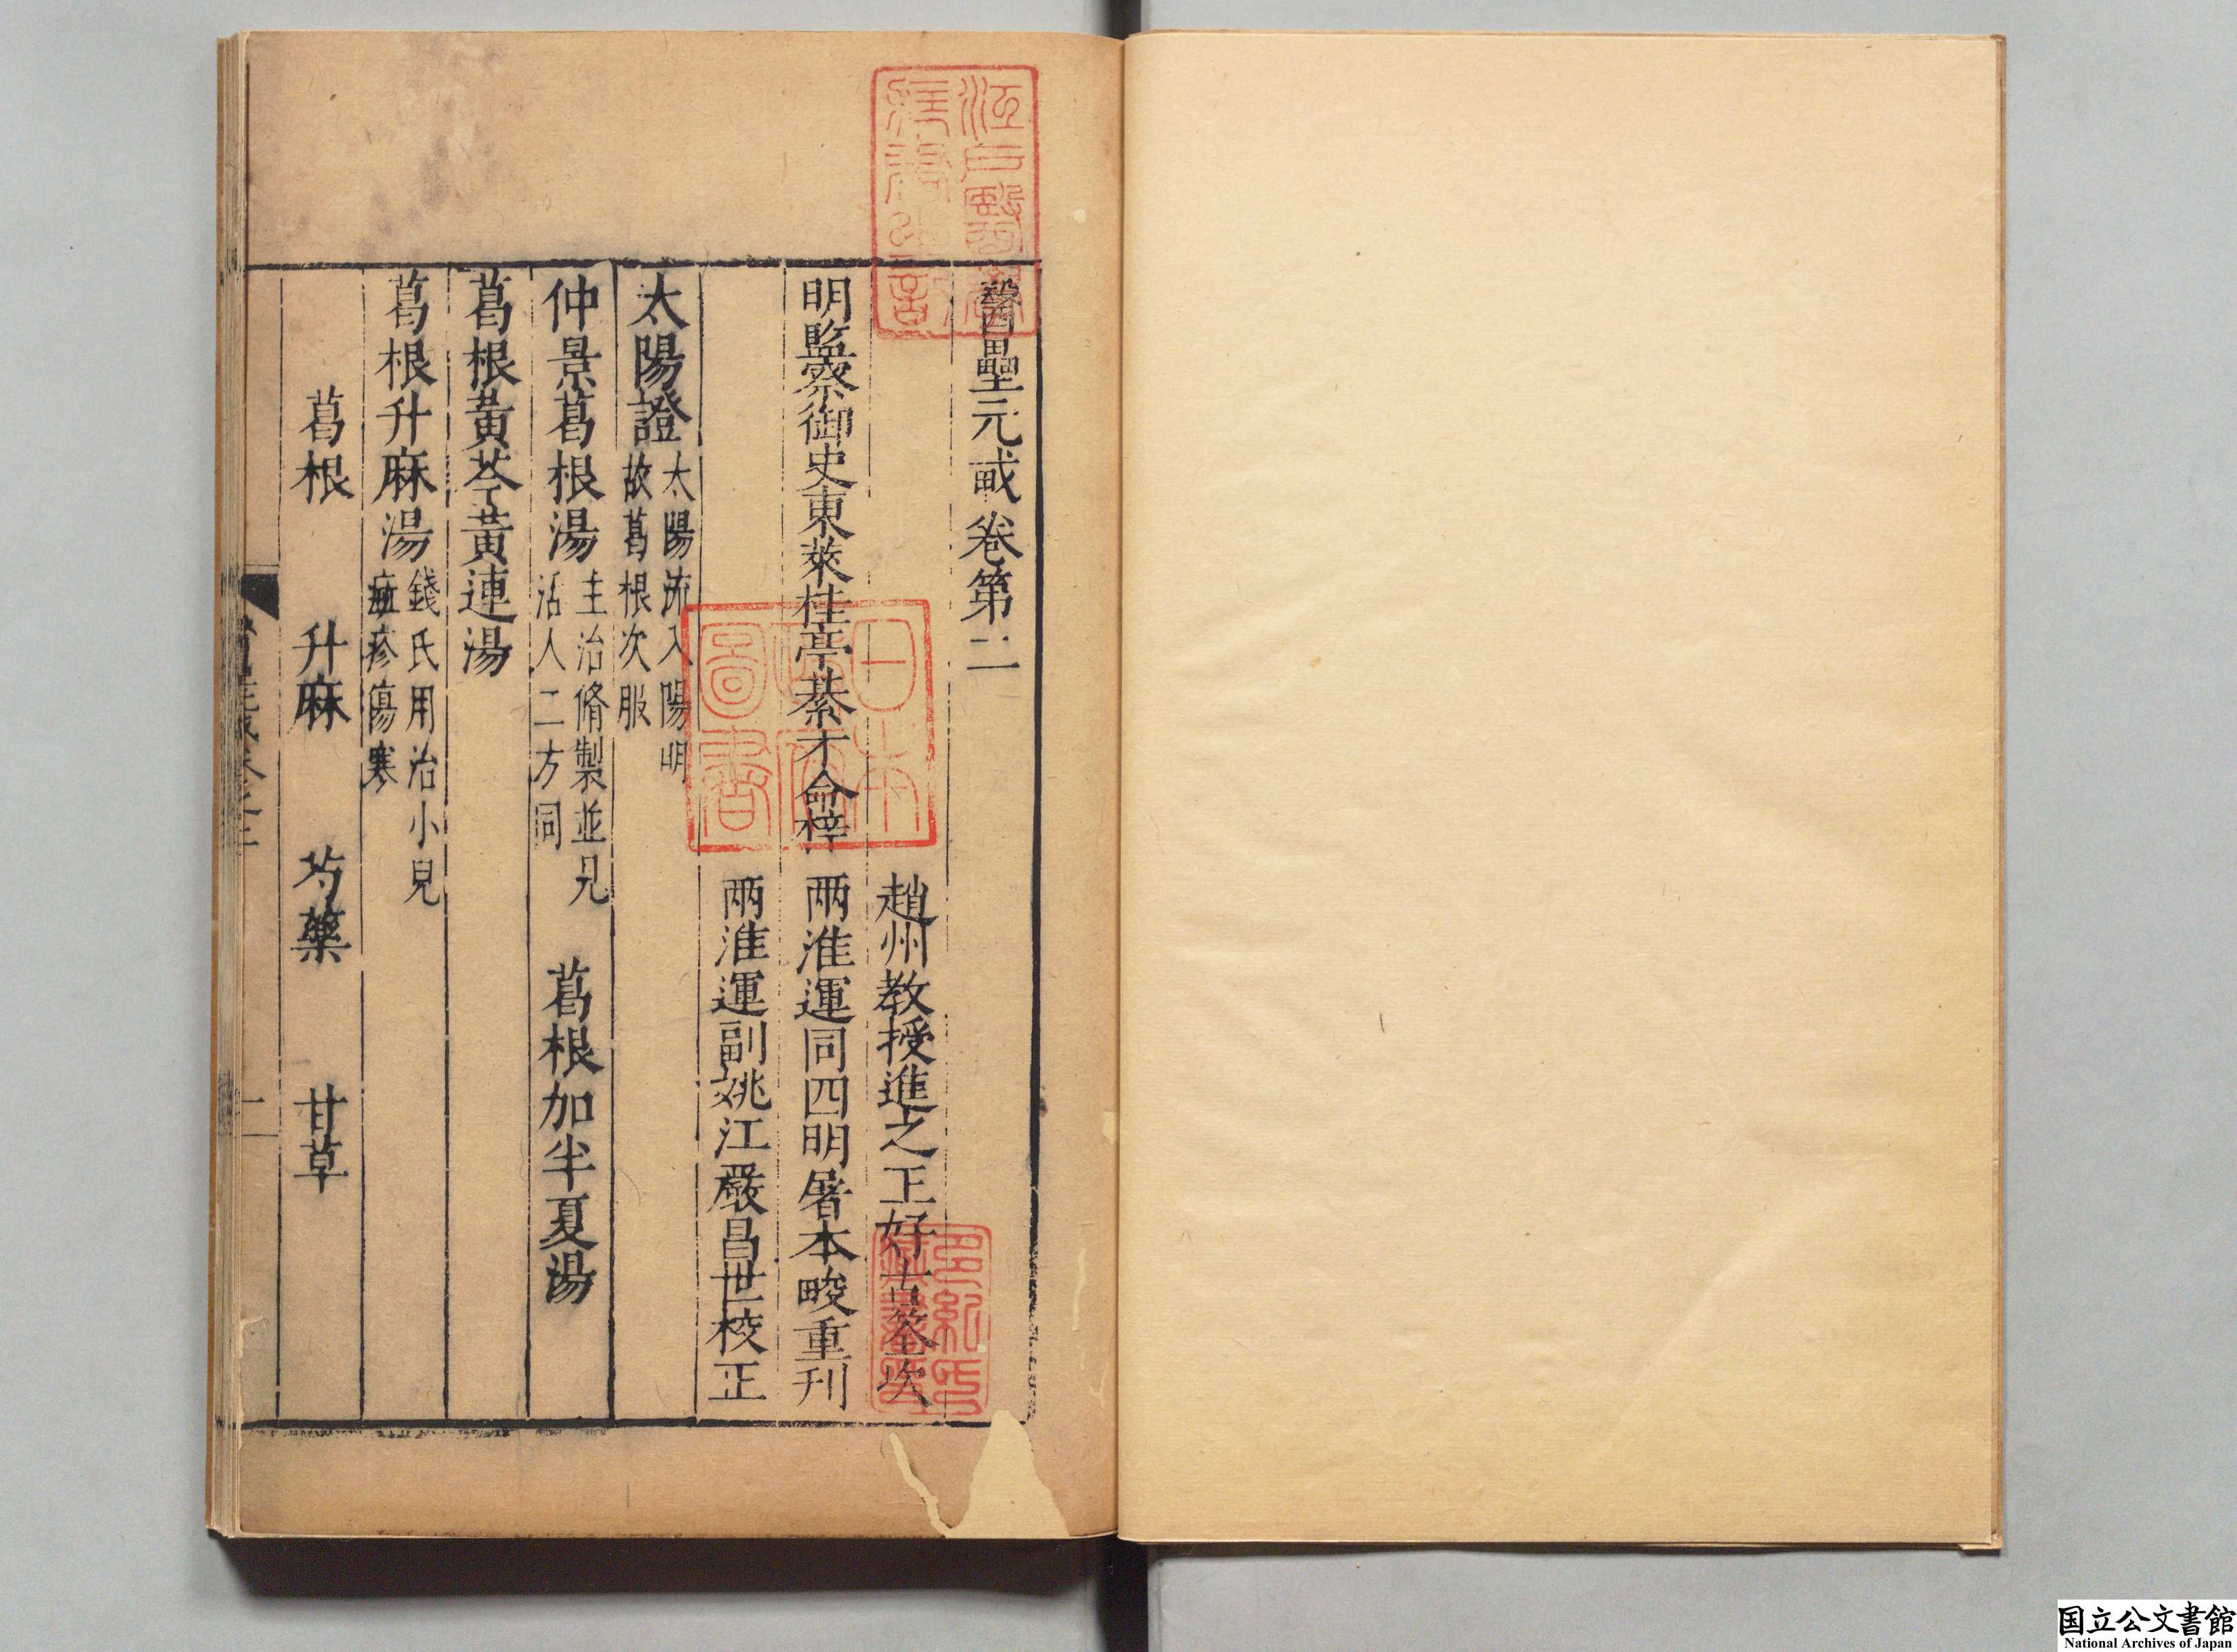 醫壘元戎卷第二
趙州教授進之王好古
明監察御史東萊桂亭綦才命梓
兩淮運同四明屠本畯重刊
兩淮運副姚江嚴昌世校正
太陽證
太陽流入陽明
故葛根次服
仲景葛根湯
主治脩製並見
活人二方同
葛根加半夏湯
葛根黃芩黃連湯
葛根升麻湯
錢氏用治小兒
瘡疹傷寒
葛根　升麻　芍藥　甘草
江戶醫學
多紀氏
日本
政府
圖書
国立公文書館
National Archives of Japan